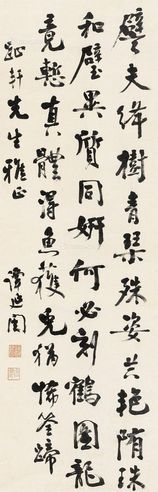 譬夫绛樹青琴殊姿共艳隋珠
和璧異質同妍何必刻鶴圖龍
竟慙真體得魚獲兔猶恡筌蹄
先生雅正
譚延闓